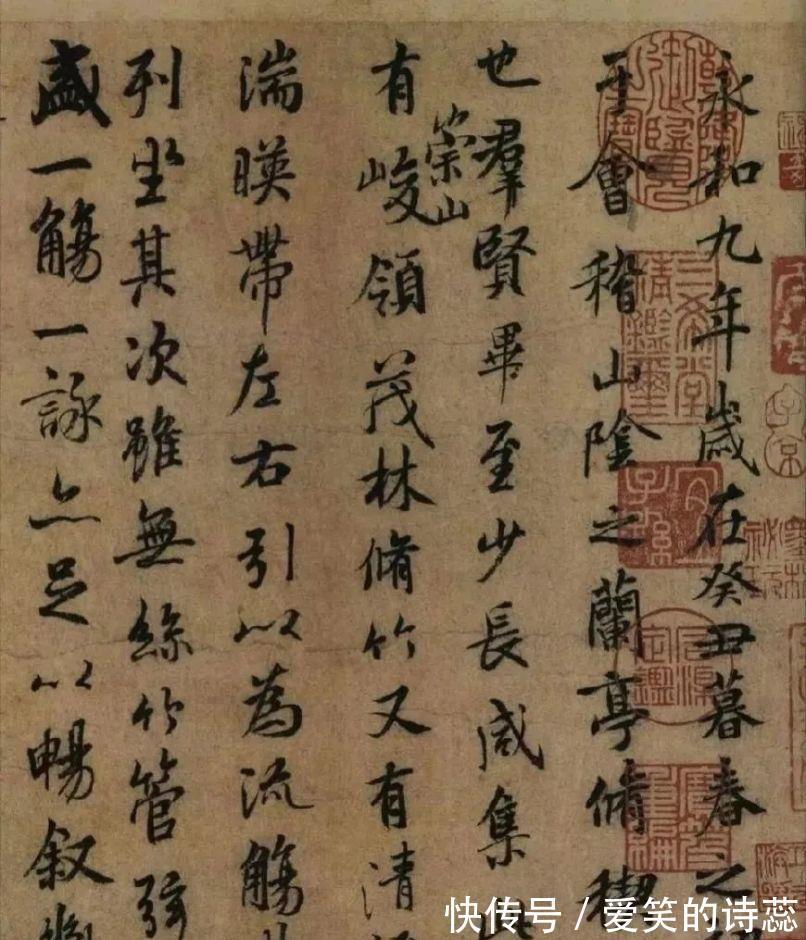 永和九年歲在癸丑暮春之
于會稽山陰之蘭亭脩禊
也羣賢畢至少長咸集此
有崇山峻領茂林脩竹又有清
湍暎帶左右引以為流觴
列坐其次雖無絲竹管弦
盛一觴一詠亦足以暢叙
三希堂精鑑璽
宜子孫
快传号 / 爱笑的诗蕊